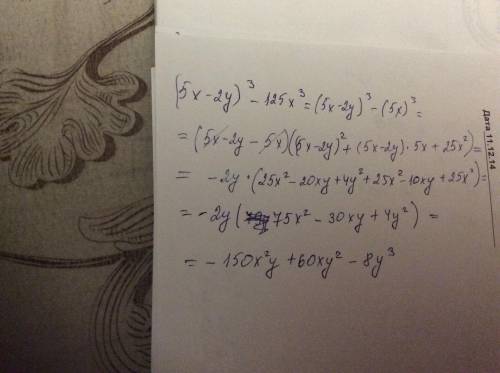 (5x-2y)³ - 125x³ = (5x-2y)³ - (5x)³ =
= (5x-2y-5x)((5x-2y)²+(5x-2y)·5x+25x²) =
= -2y·(25x²-20xy+4y²+25x²-10xy+25x²) =
= -2y(75x²-30xy+4y²) =
= -150x²y+60xy²-8y³
Дата 11.12.14